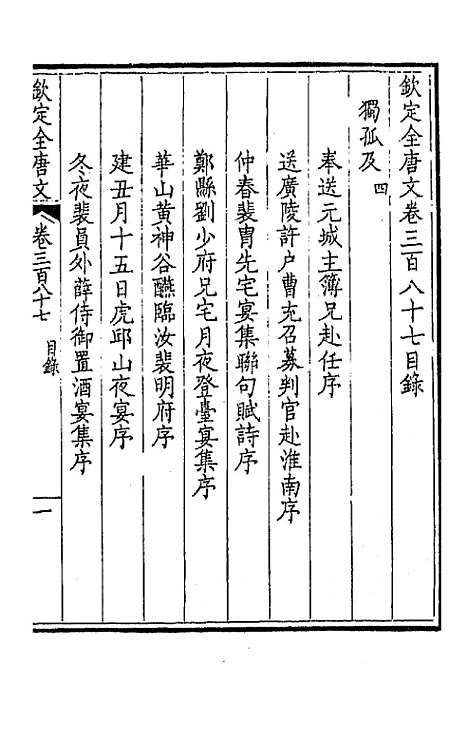 欽定全唐文卷三百八十七目錄
獨孤及 四
奉送元城主簿兄赴任序
送廣陵許户曹充召募判官赴淮南序
仲春裴胄先宅宴集聯句賦詩序
鄭縣劉少府兄宅月夜登臺宴集序
華山黄神谷讌臨汝裴明府序
建丑月十五日虎邱山夜宴序
冬夜裴員外薛侍御置酒宴集序
欽定全唐文 卷三百八十七 目錄 一